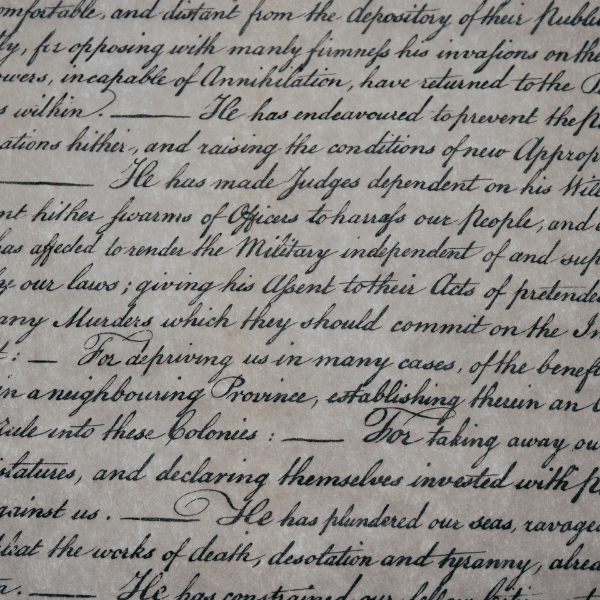 omfortable, and distant from the depository of their Public
tly, for opposing with manly firmneſs his invaſions on the
owers, incapable of Annihilation, have returned to the P
s within. — He has endeavoured to prevent the p
ations hither, and raising the conditions of new Approp
— He has made Judges dependent on his Will
nt hither ſwarms of Officers to harraſs our People, and e
has affected to render the Military independent of and sup
by our laws; giving his Aſsent to their Acts of pretende
any Murders which they should commit on the In
t: — For depriving us in many cases, of the benefi
in a neighbouring Province, establishing therein an A
rule into these Colonies: — For taking away ou
islatures, and declaring themselves invested with p
gainst us. — He has plundered our seas, ravaged
pleat the works of death, desolation and tyranny, alrea
n. — He has constrained our fellow